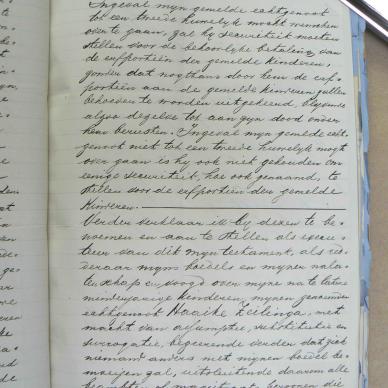 Ingeval myn gemelde echtgenoot
tot een tweede huwelyk mocht wenschen
over te gaan, zal hy securiteit moeten
stellen voor de behoorlyke betaling van
de erfportiën der gemelde kinderen,
zonder dat nogthans door hem de erf-
portiën aan de gemelde kinderen zullen
behoeven te worden uitgekeerd, blyvende
alzoo dezelve tot aan zyn dood onder
hem berusten. Ingeval myn gemelde echt-
genoot niet tot een tweede huwelyk mogt
over gaan is hy ook niet gehouden om
eenige securiteit, hoe ook genaamd, te
stellen voor de erfportiën der gemelde
kinderen.
Verder verklaar ik by dezen te be-
noemen en aan te stellen als execu-
teur van dit myn testament, als red-
deraar myns boedels en myner nala-
tenschap en voogd over myne na te laten
minderjarige kinderen, mynen genoemden
echtgenoot Haaike Tellinga, met
macht van assumptie, substitutie en
surrogatie, begeerende verder dat zich
niemand anders met mynen boedel be-
moeijen zal, uitsluitende daarom alle